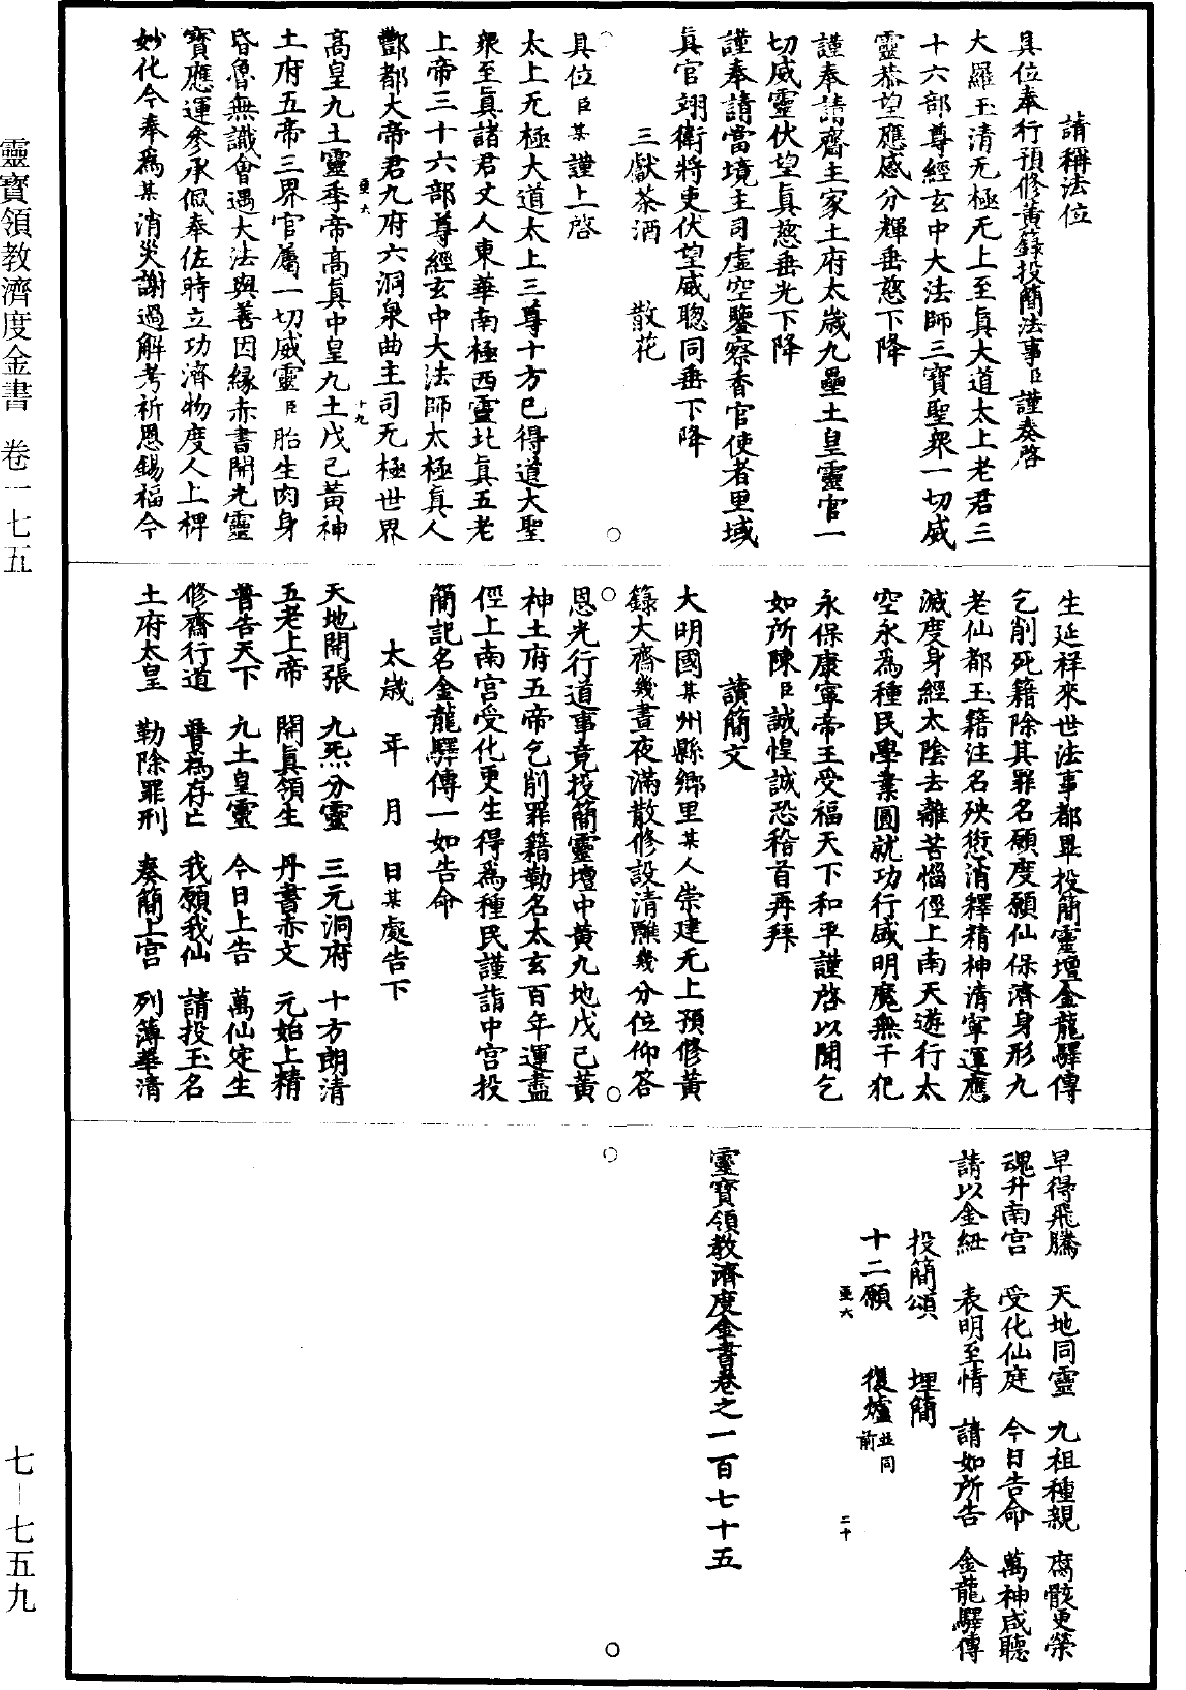 請稱法位
具位奉行預修黃籙投簡法事臣謹奏啓
大羅玉清无極无上至眞大道太上老君三
十六部尊經玄中大法師三寶聖衆一切威
靈恭望應感分輝垂慈下降
謹奉請齋主家土府太歲九壘土皇靈官一
切威靈伏望眞慈垂光下降
謹奉請當境主司虛空鑒察香官使者里域
眞官翊衛將吏伏望威聰同垂下降
三獻茶酒　散花
具位臣某謹上啓
太上无極大道太上三尊十方已得道大聖
衆至眞諸君丈人東華南極西靈北眞五老
上帝三十六部尊經玄中大法師太極眞人
酆都大帝君九府六洞泉曲主司无極世界
亟六　十九
高皇九土靈季帝高眞中皇九土戊己黃神
土府五帝三界官屬一切威靈臣胎生肉身
昏魯無識會遇大法與善因緣赤書開光靈
寶應運參承佩奉佐時立功濟物度人上裨
妙化今奉爲某消災謝過解考祈恩錫福今
生延祥來世法事都畢投簡靈壇金龍驛傳
乞削死籍除其罪名願度願仙保濟身形九
老仙都玉籍注名殃愆消釋精神清寧運應
滅度身經太陰去離苦惱徑上南天遊行太
空永爲種民學業圓就功行威明魔無干犯
永保康寧帝王受福天下和平謹啓以聞乞
如所陳臣誠惶誠恐稽首再拜
讀簡文
大明國某州縣鄉里某人崇建无上預修黃
籙大齋幾晝夜滿散修設清醮幾分位仰答
恩光行道事竟投簡靈壇中黃九地戊己黃
神土府五帝乞削罪籍勒名太玄百年運盡
徑上南宫受化更生得爲種民謹詣中宫投
簡記名金龍驛傳一如告命
太歲　年　月　日某處告下
天地開張　九炁分靈　三元洞府　十方朗清
五老上帝　開眞領生　丹書赤文　元始上精
普告天下　九土皇靈　今日上告　萬仙定生
修齋行道　普爲存亡　我願我仙　請投玉名
土府太皇　勒除罪刑　奏簡上宫　列簿華清
早得飛騰　天地同靈　九祖種親　腐骸更榮
魂升南宫　受化仙庭　今日告命　萬神咸聽
請以金紐　表明至情　請如所告　金龍驛傳
投簡頌　埋簡
十二願　復爐並同前
亟六　二十
靈寶領教濟度金書卷之一百七十五
靈寶領教濟度金書　卷一七五
七－七五九